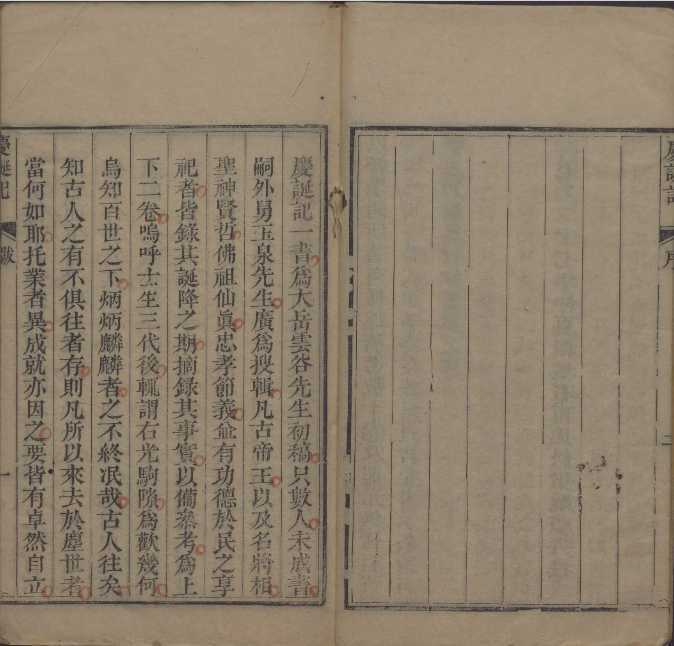 慶誕記
序
二
慶誕記一書爲大岳雲谷先生初稿只數人未成書
嗣外舅玉泉先生廣爲搜輯凡古帝王以及名將相
聖神賢哲佛祖仙眞忠孝節義並有功德於民之享
祀者皆錄其誕降之期摘錄其事實以備參考爲上
下二卷嗚呼士生三代後輒謂石光駒隙爲歡幾何
烏知百世之下炳炳麟麟者之不終泯哉古人往矣
知古人之有不俱往者存則凡所以來去於塵世者
當何如耶托業者異成就亦因之要皆有卓然自立
慶誕記
跋
一